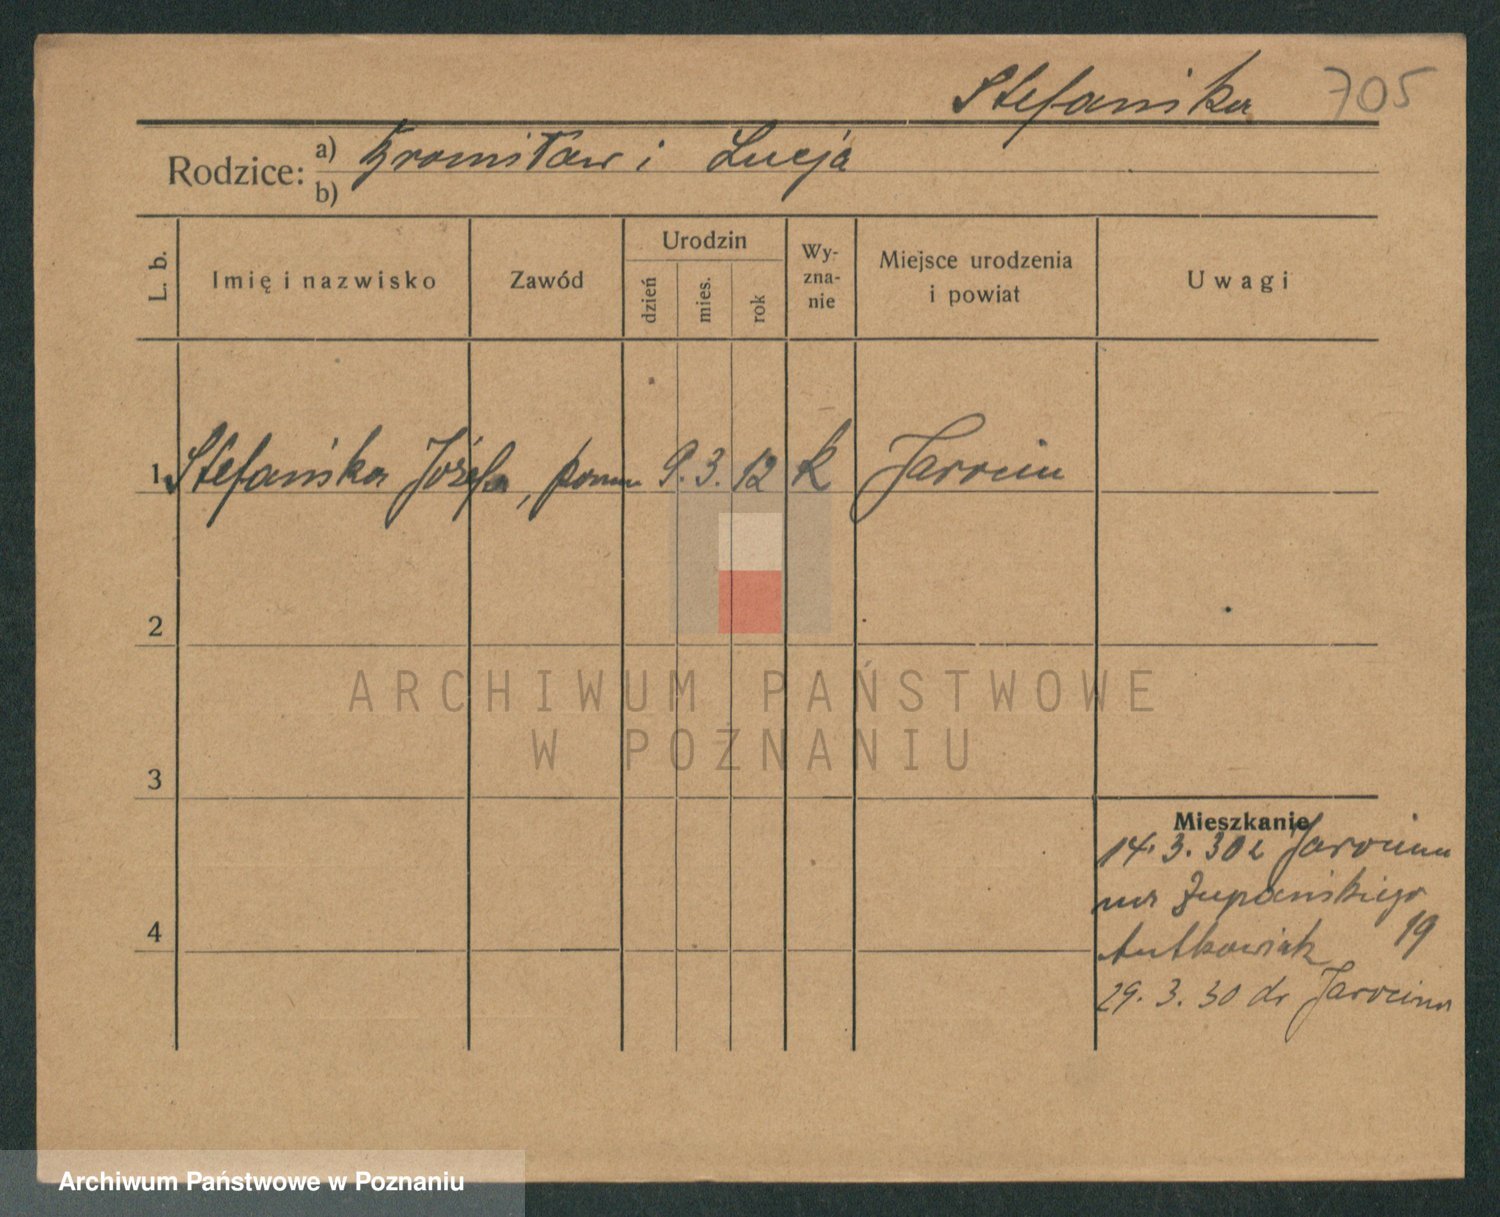 Stefańska 705
Rodzice: a) Bronisław i Łucja
b)
L. b.
Imię i nazwisko
Zawód
Urodzin
dzień
mies.
rok
Wy-
zna-
nie
Miejsce urodzenia
i powiat
Uwagi
1 Stefańska Józefa, pomu 9. 3. 12 k Jarocin
2
ARCHIWUM PAŃSTWOWE
W POZNANIU
3
Mieszkanie
14. 3. 30 z Jarocina
na Żupańskiego
19
Antkowiak
4
29. 3. 30 do Jarocina
Archiwum Państwowe w Poznaniu